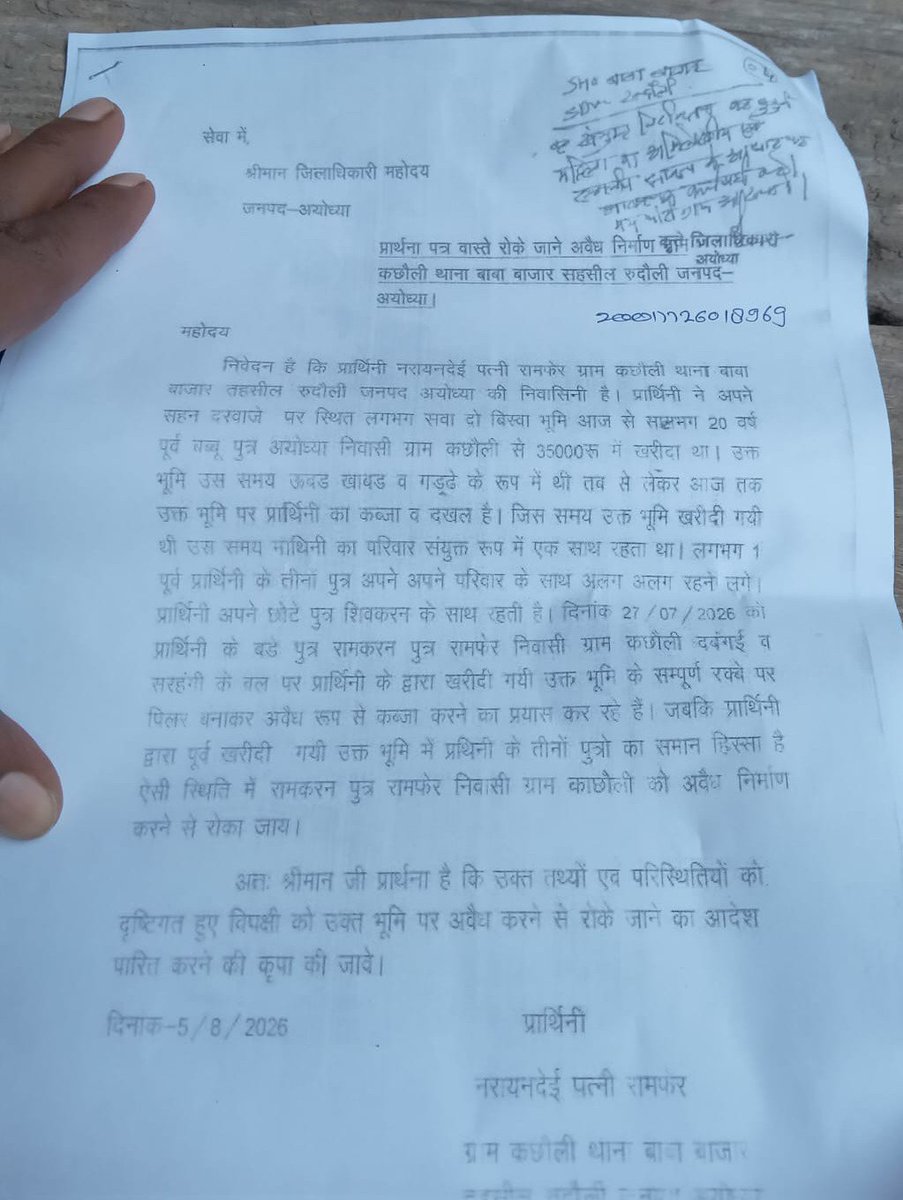 SHO बाबा बाजार
SDM रुदौली
सेवा में,
श्रीमान जिलाधिकारी महोदय
जनपद–अयोध्या
प्रार्थना पत्र वास्ते रोके जाने अवैध निर्माण जिलाधिकारी
अयोध्या
कछौली थाना बाबा बाजार सहसील रुदौली जनपद–
अयोध्या।
20001726018969
महोदय
निवेदन है कि प्रार्थिनी नरायनदेई पत्नी रामफेर ग्राम कछौली थाना बाबा
बाजार तहसील रुदौली जनपद अयोध्या की निवासिनी है। प्रार्थिनी ने अपने
सहन दरवाजे पर स्थित लगभग सवा दो बिस्वा भूमि आज से 20 वर्ष
पूर्व बब्बू पुत्र अयोध्या निवासी ग्राम कछौली से 35000रू में खरीदा था। उक्त
भूमि उस समय ऊबड खाबड व गड्ढे के रूप में थी तब से लेकर आज तक
उक्त भूमि पर प्रार्थिनी का कब्जा व दखल है। जिस समय उक्त भूमि खरीदी गयी
थी उस समय का परिवार संयुक्त रूप में एक साथ रहता था। लगभग 1
पूर्व प्रार्थिनी के तीनों पुत्र अपने अपने परिवार के साथ अलग अलग रहने लगे।
प्रार्थिनी अपने छोटे पुत्र शिवकरन के साथ रहती है। दिनांक 27/07/2026 को
प्रार्थिनी के बडे पुत्र रामकरन पुत्र रामफेर निवासी ग्राम कछौली दबंगई व
सरहंगी के बल पर प्रार्थिनी के द्वारा खरीदी गयी उक्त भूमि के सम्पूर्ण रक्बे पर
पिलर बनाकर अवैध रूप से कब्जा करने का प्रयास कर रहे हैं। जबकि प्रार्थिनी
द्वारा पूर्व खरीदी गयी उक्त भूमि में प्रथिनी के तीनों पुत्रो का समान हिस्सा है
ऐसी स्थिति में रामकरन पुत्र रामफेर निवासी ग्राम काछौली को अवैध निर्माण
करने से रोका जाय।
अतः श्रीमान जी प्रार्थना है कि उक्त तथ्यों एव परिस्थितियों को
दृष्टिगत हुए विपक्षी को उक्त भूमि पर अवैध करने से रोके जाने का आदेश
पारित करने की कृपा की जावे।
दिनाक–5/8/2026
प्रार्थिनी
नरायनदेई पत्नी रामफेर
ग्राम कछौली थाना बाबा बाजार